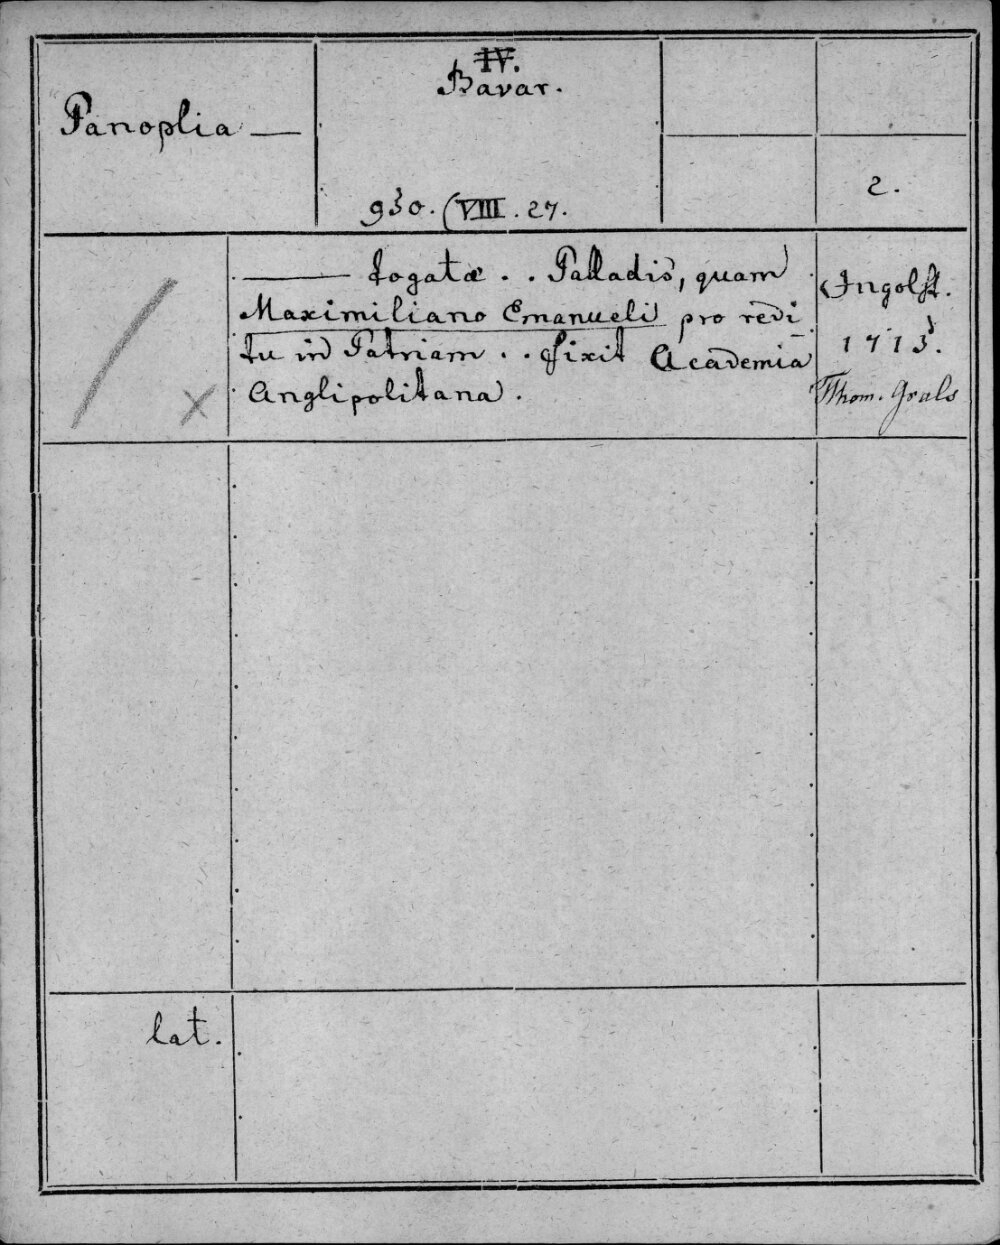 Panoplia —
IV.
Bavar.
930. (VIII. 27.
2.
——— togatæ . . Palladis, quam
Maximiliano Emanueli pro redi
tu in Patriam . . fixit Academia
Anglipolitana.
Ingolst.
1715.
Thom. Grals
x
lat.